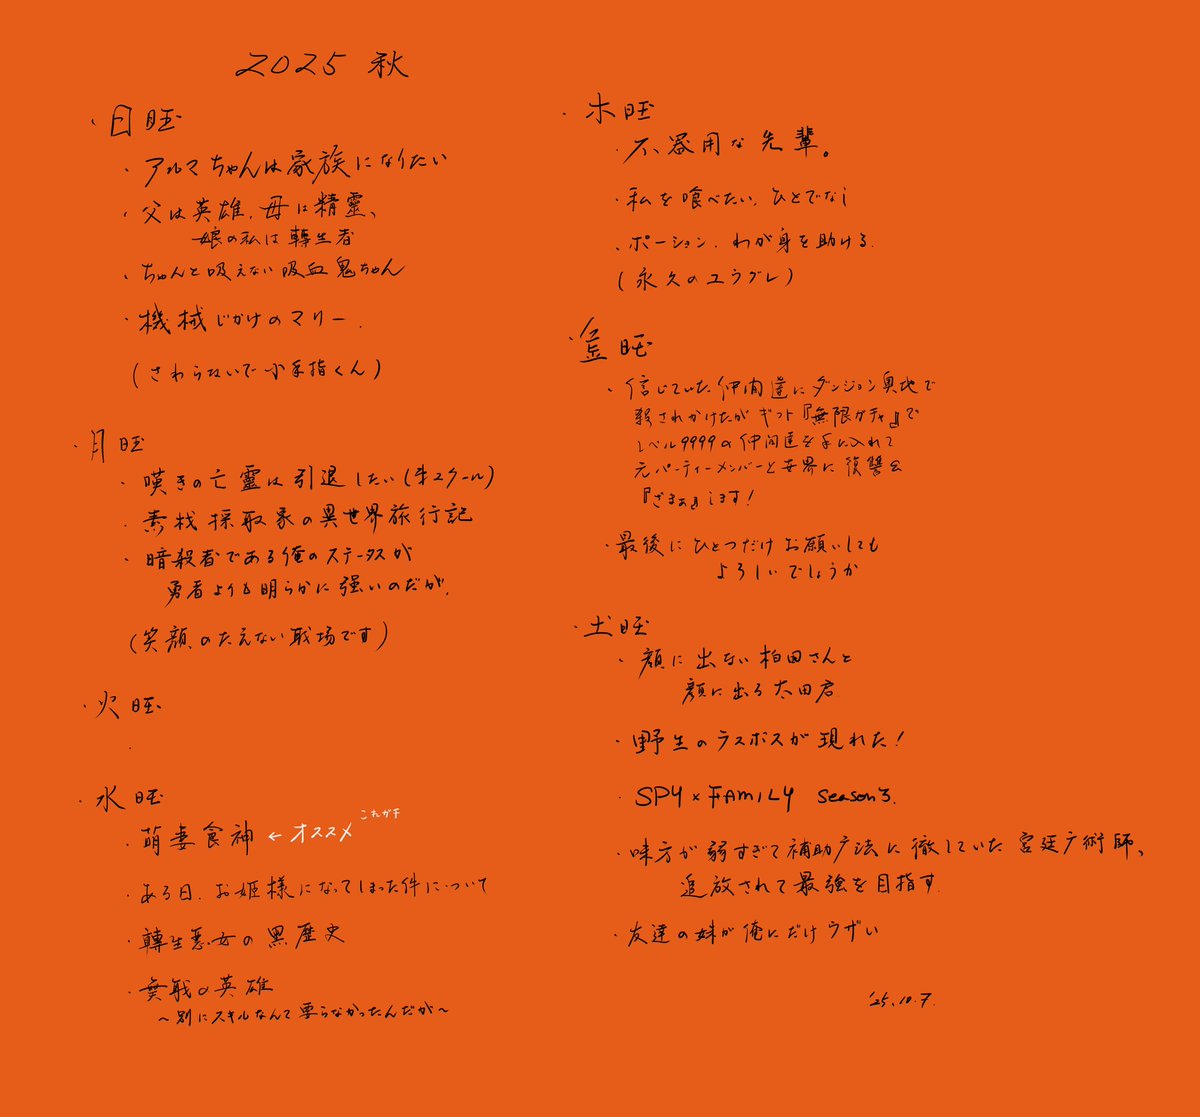 2025 秋
・日旺
・アルマちゃんは家族になりたい
・父は英雄、母は精靈、
娘の私は轉生者
・ちゃんと吸えない吸血鬼ちゃん
・機械じかけのマリー.
(さわらないで小手指くん)
・月旺
・嘆きの亡靈は引退したい(牛2クール)
・素材採取家の異世界旅行記
・暗殺者である俺のステータスが
勇者よりも明らかに強いのだが.
(笑顔のたえない職場です)
・火旺
・
・水旺
・萌妻食神 ← オススメ
・ある日、お姫様になってしまった件について
・轉生悪女の黒歴史
・無戦の英雄
～別にスキルなんて要らなかったんだが～
・木旺
・不器用な先輩。
・私を喰べたい、ひとでなし
・ポーション、わが身を助ける.
(永久のユウグレ)
・金旺
・信じていた仲間達にダンジョン奥地で
殺されかけたがギフト『無限ガチャ』で
レベル9999の仲間達を手に入れて
元パーティーメンバーと世界に復讐&
『ざまぁ』します!
・最後にひとつだけお願いしても
よろしいでしょうか
・土旺
・顔に出ない柏田さんと
顔に出る太田君
・野生のラスボスが現れた!
・SPY×FAMILY season3.
・味方が弱すぎて補助广法に徹していた宮廷广術師、
追放されて最強を目指す.
・友達の妹が俺にだけウザい
'25.10.7.